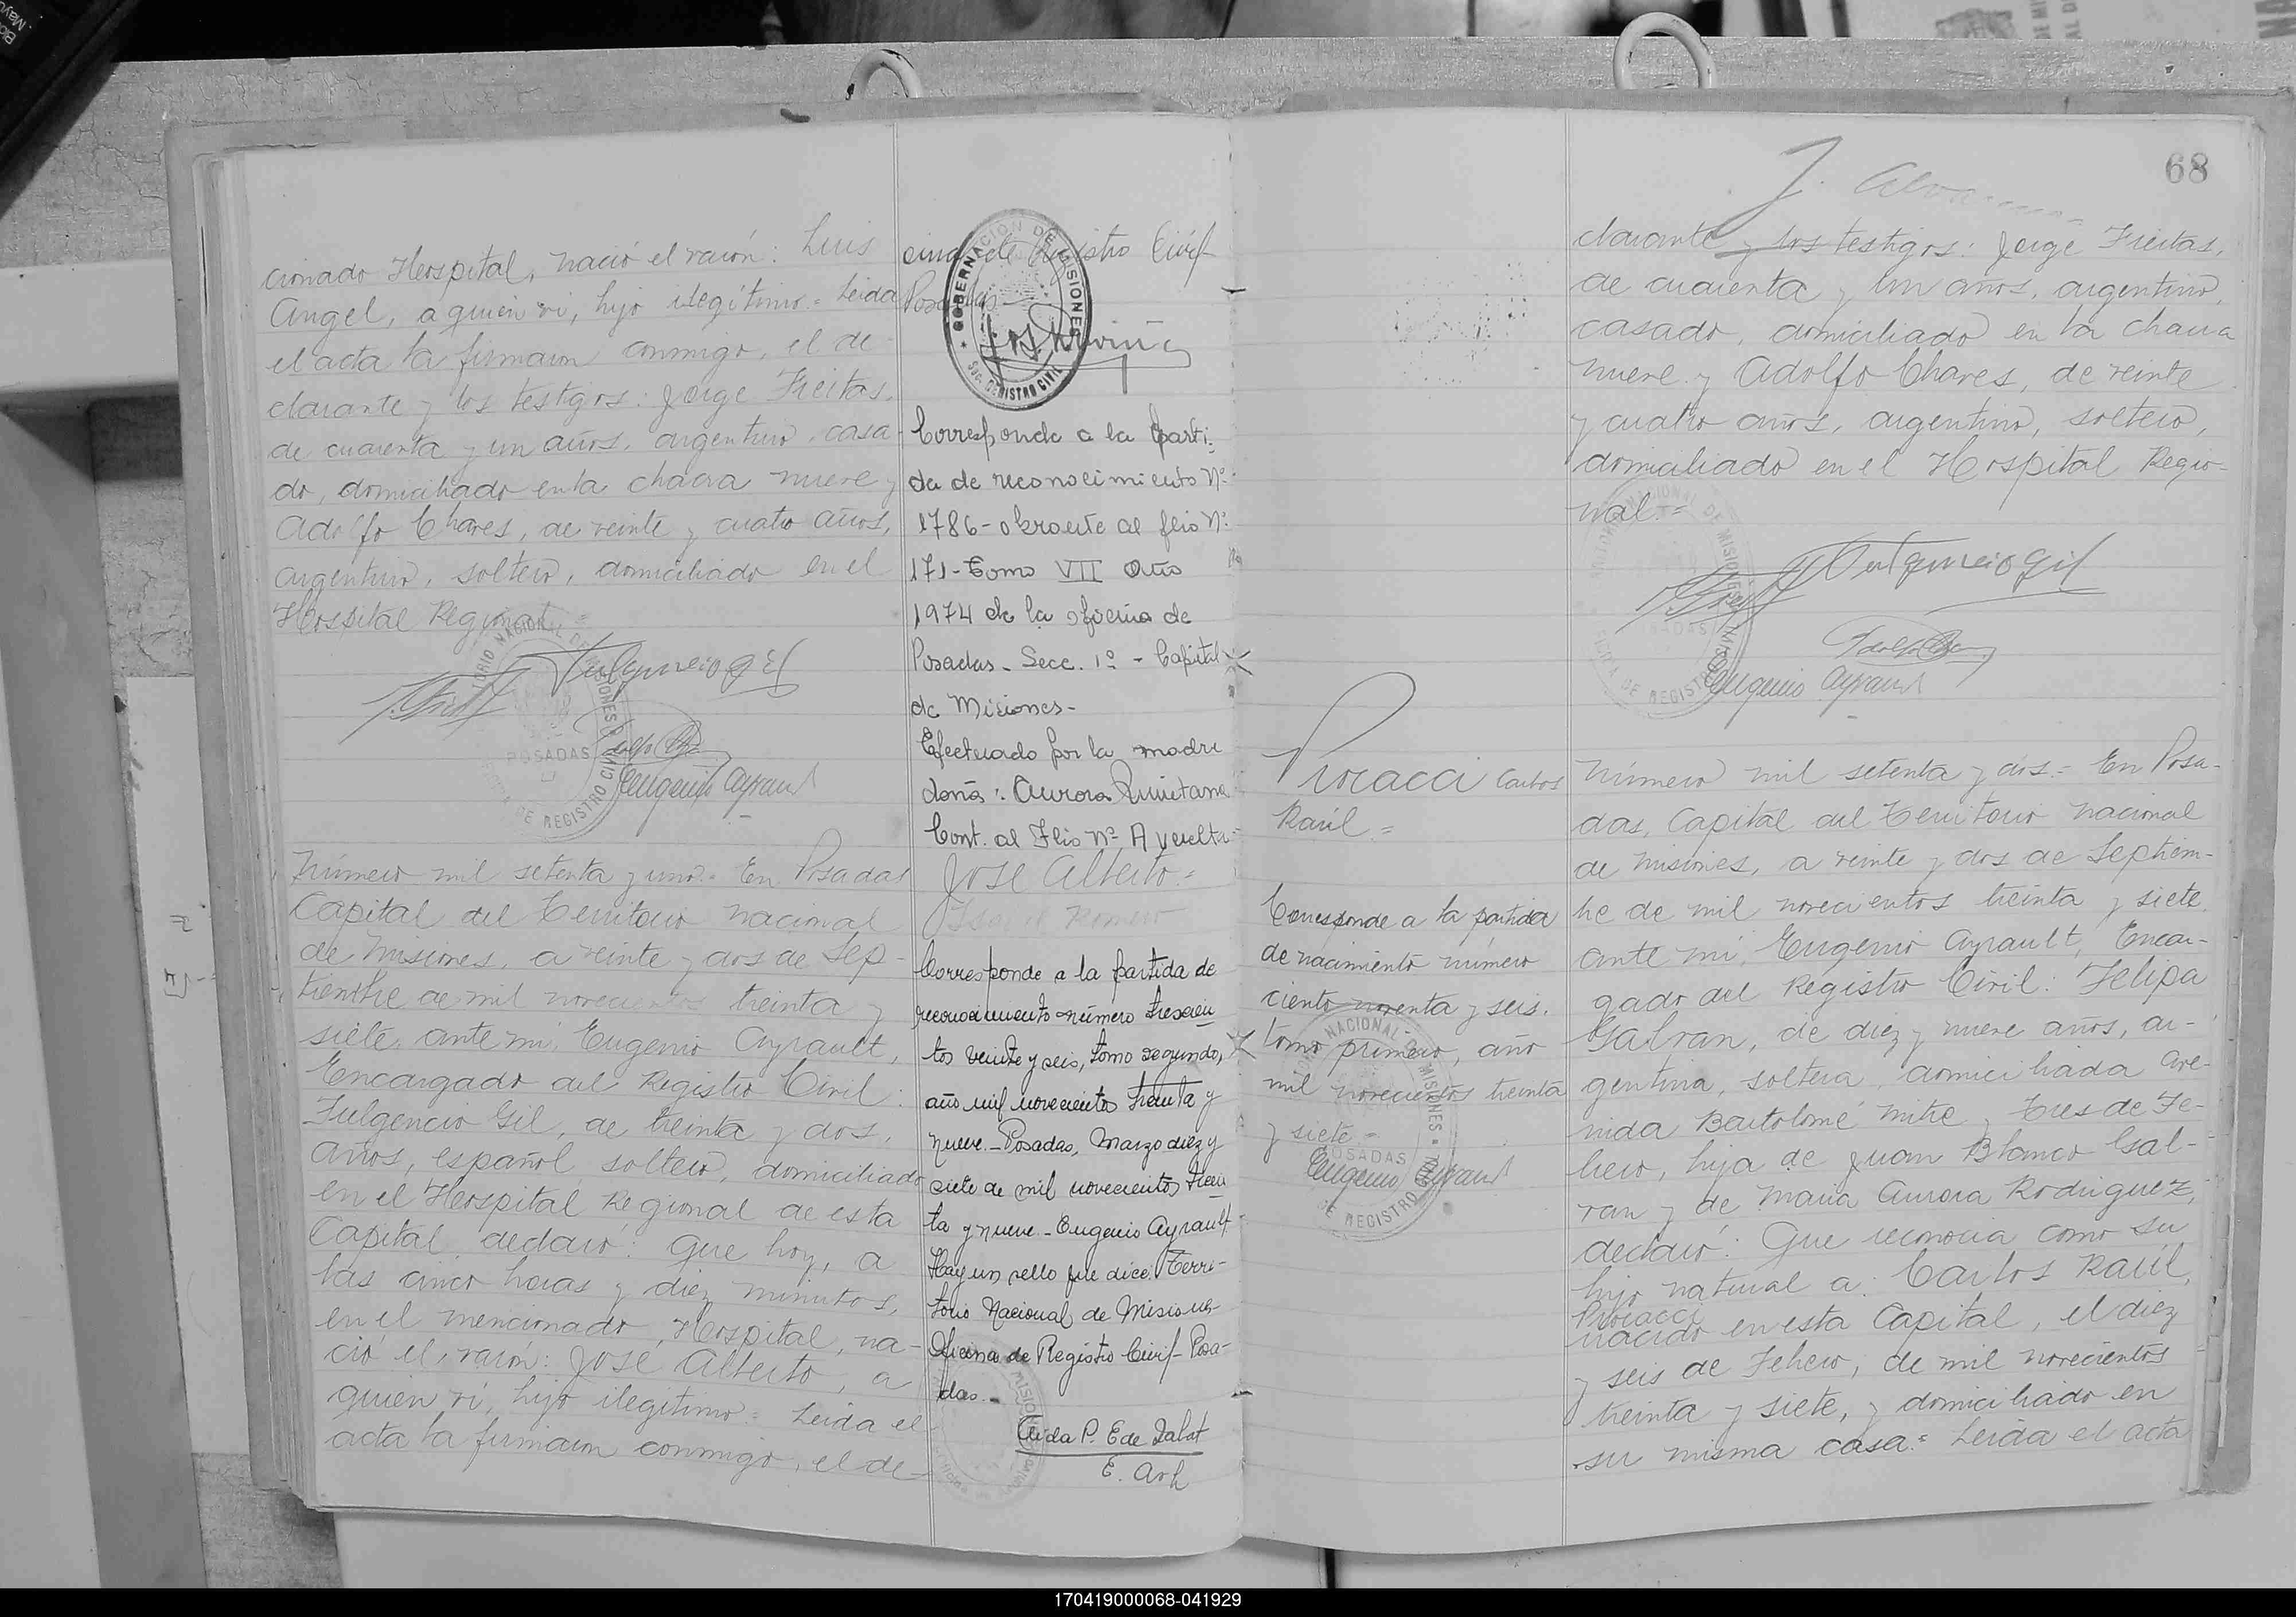 cionado Hospital, nació el varón: Luis
Angel, a quien ví, hijo ilegítimo = Leida
el acta la firmaron conmigo, el de-
clarante y los testigos: Jorge Freitas,
de cuarenta y un años, argentino, casa-
do, domiciliado en la chacra nueve y
Adolfo Chaves, de veinte y cuatro años,
argentino, soltero, domiciliado en el
Hospital Regional =
Fulgencio Gil
Eugenio Ayrault
POSADAS
Número mil setenta y uno = En Posadas
Capital del Territorio Nacional
de Misiones, a veinte y dos de Sep-
tiembre de mil novecientos treinta y
siete, ante mi, Eugenio Ayrault,
Encargado del Registro Civil:
Fulgencio Gil, de treinta y dos,
años, español, soltero, domiciliado
en el Hospital Regional de esta
Capital, declaró: Que hoy, a
las cinco horas y diez minutos,
en el mencionado, Hospital, na-
ció el, varón: José Alberto, a
quien ví, hijo ilegítimo = Leida el
acta la firmaron conmigo, el de-
cina de Registro Civil-
Posadas-
GOBERNACION DE MISIONES
SEC. REGISTRO CIVIL
Corresponde a la parti-
da de reconocimiento Nº
1786- obrante al flio Nº
171- Tomo VII Año
1974 de la oficina de
Posadas- Secc. 1º - Capital
de Misiones-
Efectuado por la madre
doña: Aurora Quintana
Cont. al Flio Nº A vuelta-
José Alberto =
Romero
Corresponde a la partida de
reconocimiento número trescien
tos veinte y seis, tomo segundo,
año mil novecientos treinta y
nueve.- Posadas, Marzo diez y
siete de mil novecientos trein
ta y nueve.- Eugenio Ayrault
Hay un sello que dice: Terri-
torio Nacional de Misiones-
Oficina de Registro Civil- Posa-
das.-
E. Arh
68
clarante y los testigos: Jorge Freitas,
de cuarenta y un años, argentino,
casado, domiciliado en la chacra
nueve y Adolfo Chaves, de veinte
y cuatro años, argentino, soltero,
domiciliado en el Hospital Regio-
nal =
Fulgencio Gil
Eugenio Ayrault
Piroacci Carlos
Raúl =
Corresponde a la partida
de nacimiento número
ciento noventa y seis,
tomo primero, año
mil novecientos treinta
y siete =
Eugenio Ayrault
Número mil setenta y dos = En Posa-
das, Capital del Territorio Nacional
de Misiones, a veinte y dos de Septiem-
bre de mil novecientos treinta y siete
ante mi, Eugenio Ayrault, Encar-
gado del Registro Civil: Felipa
Galvan, de diez y nueve años, ar-
gentina, soltera, domiciliada Ave-
nida Bartolomé Mitre y Tres de Fe-
brero, hija de Juan Blanco Gal-
van y de Maria Aurora Rodriguez,
declaró: Que reconocia como su
hijo natural a: Carlos Raúl,
Piroacci
nacido en esta Capital, el diez
y seis de Febrero, de mil novecientos
treinta y siete, y domiciliado en
su misma casa = Leida el acta
170419000068-041929